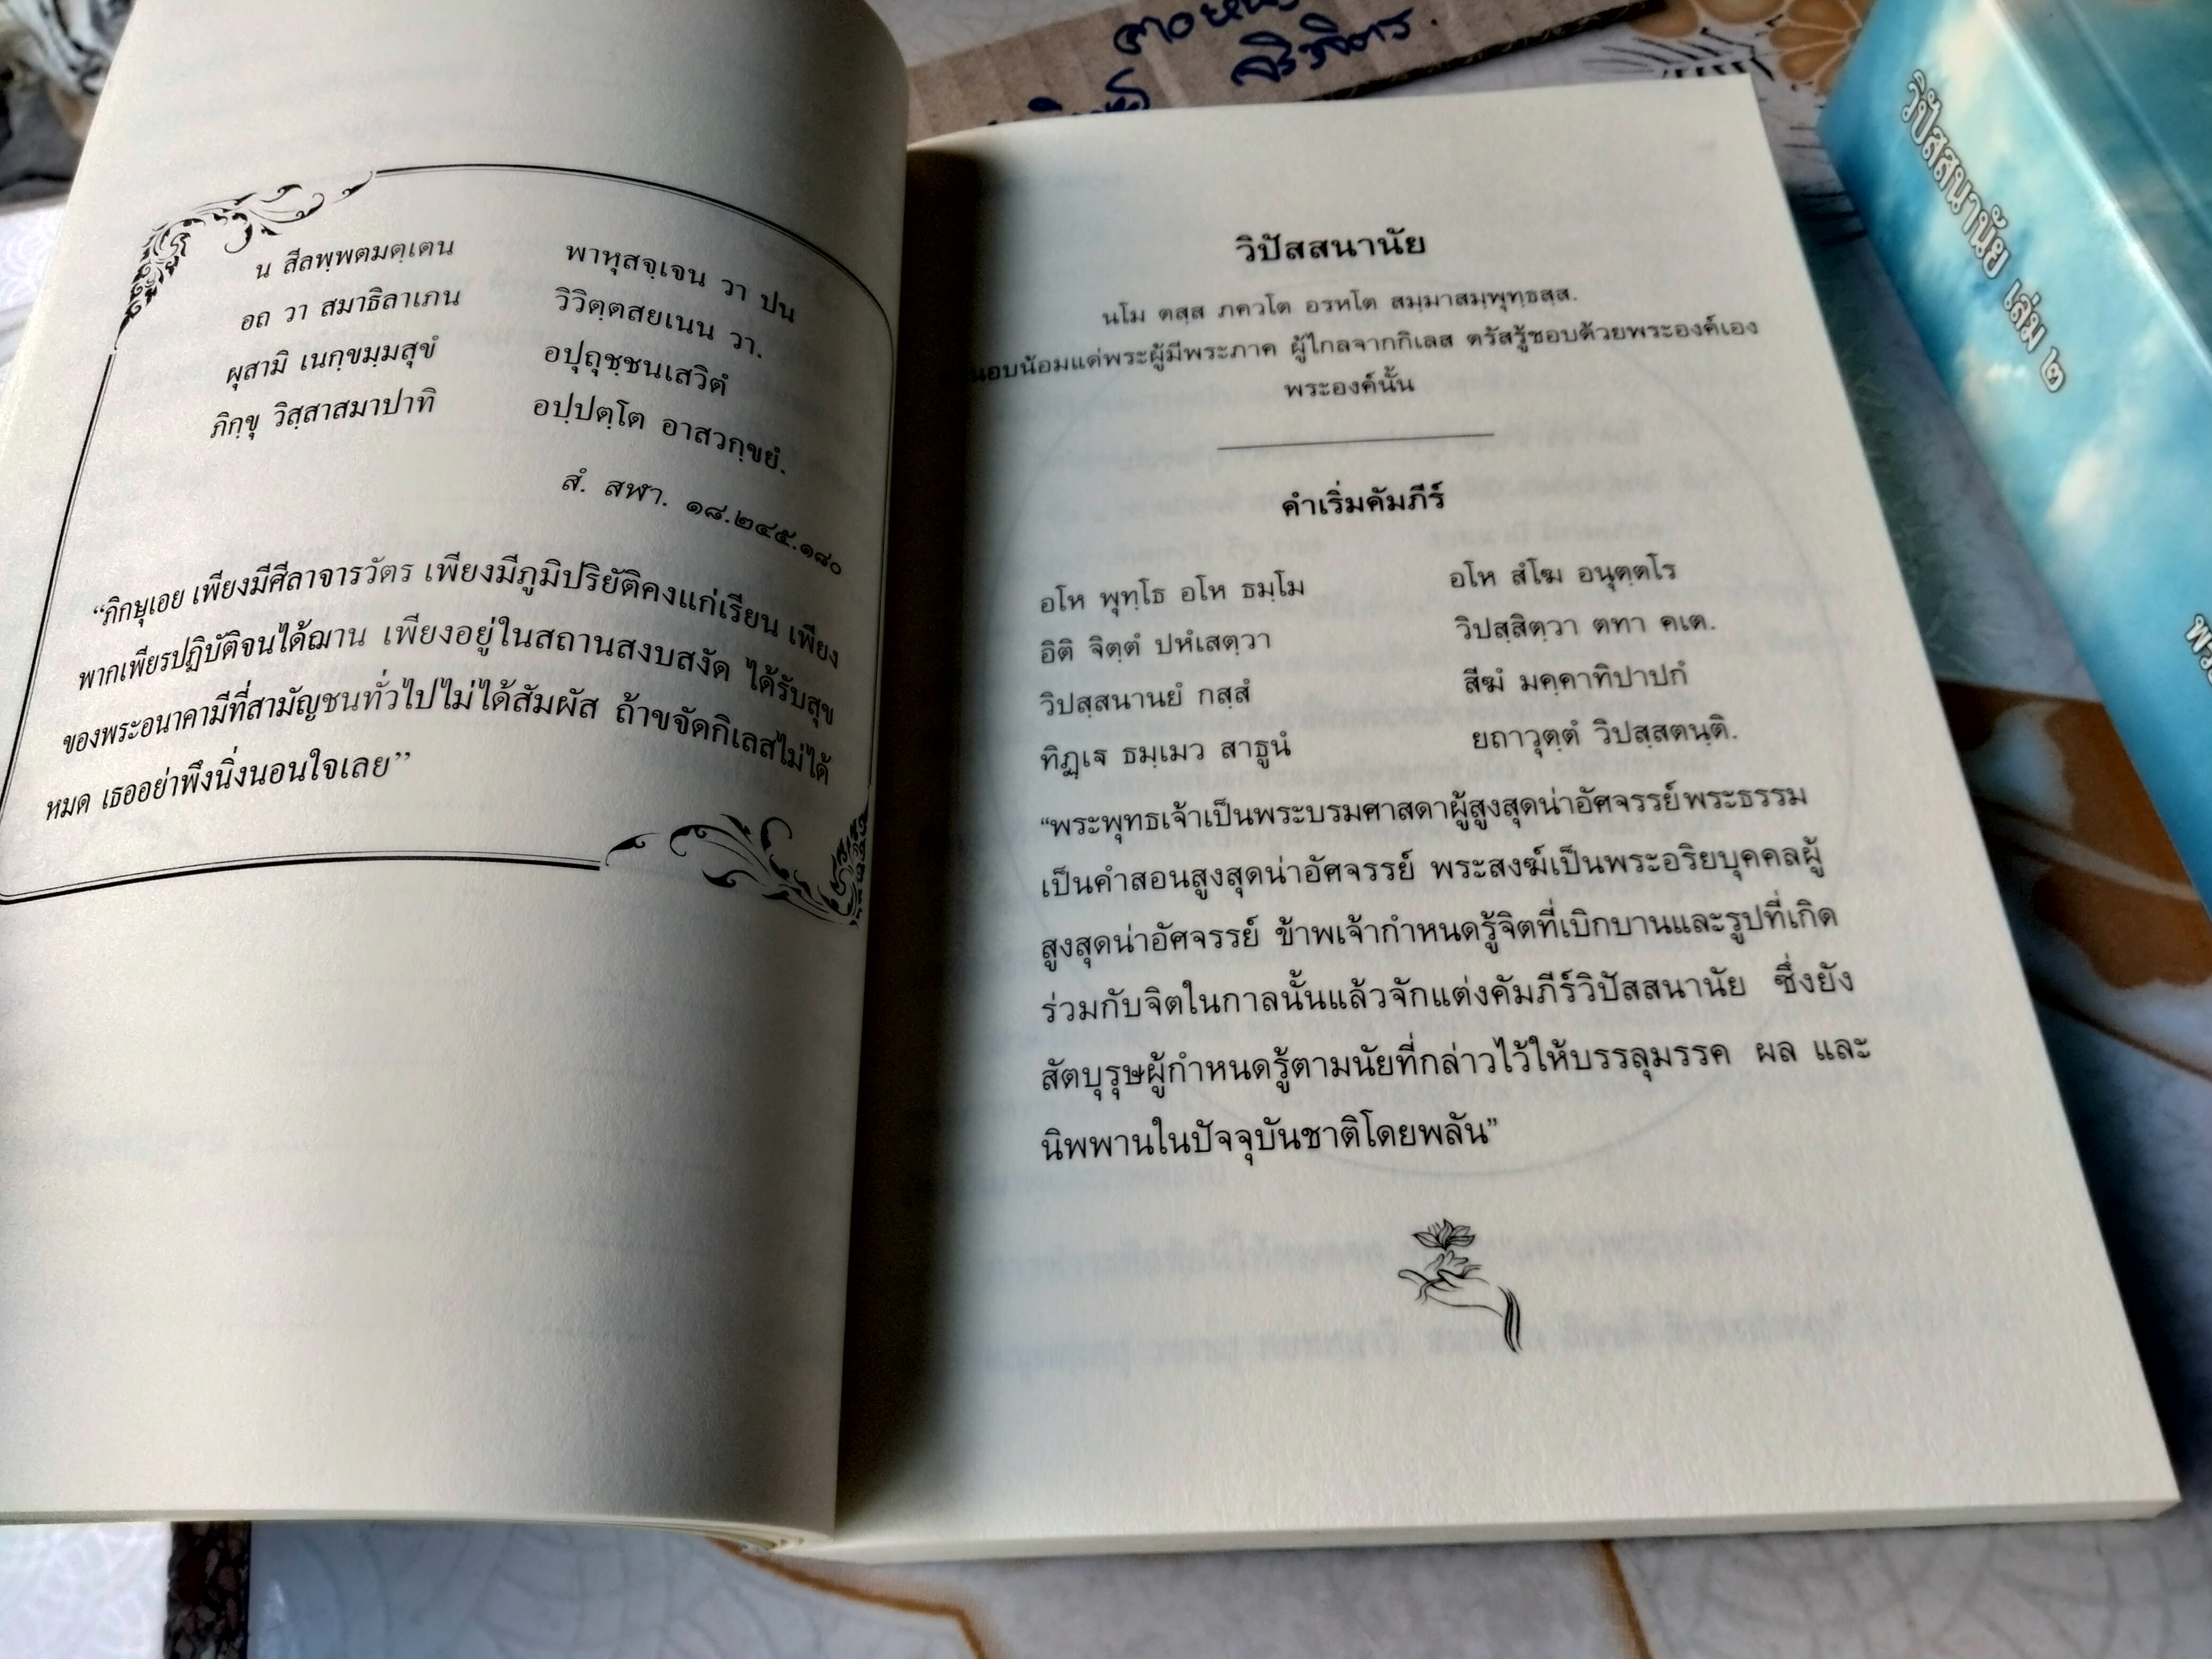 น สีลพฺพตมตฺเตน พาหุสจฺเจน วา ปน
อถ วา สมาธิลาเภน วิวิตฺตสยเนน วา.
ผุสามิ เนกฺขมฺมสุขํ อปุถุชฺชนเสวิตํ
ภิกฺขุ วิสฺสาสมาปาทิ อปฺปตฺโต อาสวกฺขยํ.
สํ. สฬา. ๑๘.๒๔๕.๑๘๐
“ภิกษุเอย เพียงมีศีลาจารวัตร เพียงมีภูมิปริยัติคงแก่เรียน เพียง
พากเพียรปฏิบัติจนได้ฌาน เพียงอยู่ในสถานสงบสงัด ได้รับสุข
ของพระอนาคามีที่สามัญชนทั่วไปไม่ได้สัมผัส ถ้าขจัดกิเลสไม่ได้
หมด เธออย่าพึงนิ่งนอนใจเลย”
วิปัสสนานัย
นโม ตสฺส ภควโต อรหโต สมฺมาสมฺพุทฺธสฺส.
นอบน้อมแด่พระผู้มีพระภาค ผู้ไกลจากกิเลส ตรัสรู้ชอบด้วยพระองค์เอง
พระองค์นั้น
คำเริ่มคัมภีร์
อโห พุทฺโธ อโห ธมฺโม อโห สํโฆ อนุตฺตโร
อิติ จิตฺตํ ปหํเสตฺวา วิปสฺสิตฺวา ตทา คเต.
วิปสฺสนานยํ กสฺสํ สีฆํ มคฺคาทิปาปกํ
ทิฏฺเฐว ธมฺเมว สาธูนํ ยถาวุตฺตํ วิปสฺสตนฺติ.
“พระพุทธเจ้าเป็นพระบรมศาสดาผู้สูงสุดน่าอัศจรรย์พระธรรม
เป็นคำสอนสูงสุดน่าอัศจรรย์ พระสงฆ์เป็นพระอริยบุคคลผู้
สูงสุดน่าอัศจรรย์ ข้าพเจ้ากำหนดรู้จิตที่เบิกบานและรูปที่เกิด
ร่วมกับจิตในกาลนั้นแล้วจักแต่งคัมภีร์วิปัสสนานัย ซึ่งยัง
สัตบุรุษผู้กำหนดรู้ตามนัยที่กล่าวไว้ให้บรรลุมรรค ผล และ
นิพพานในปัจจุบันชาติโดยพลัน”
วิปัสสนานัย เล่ม ๒